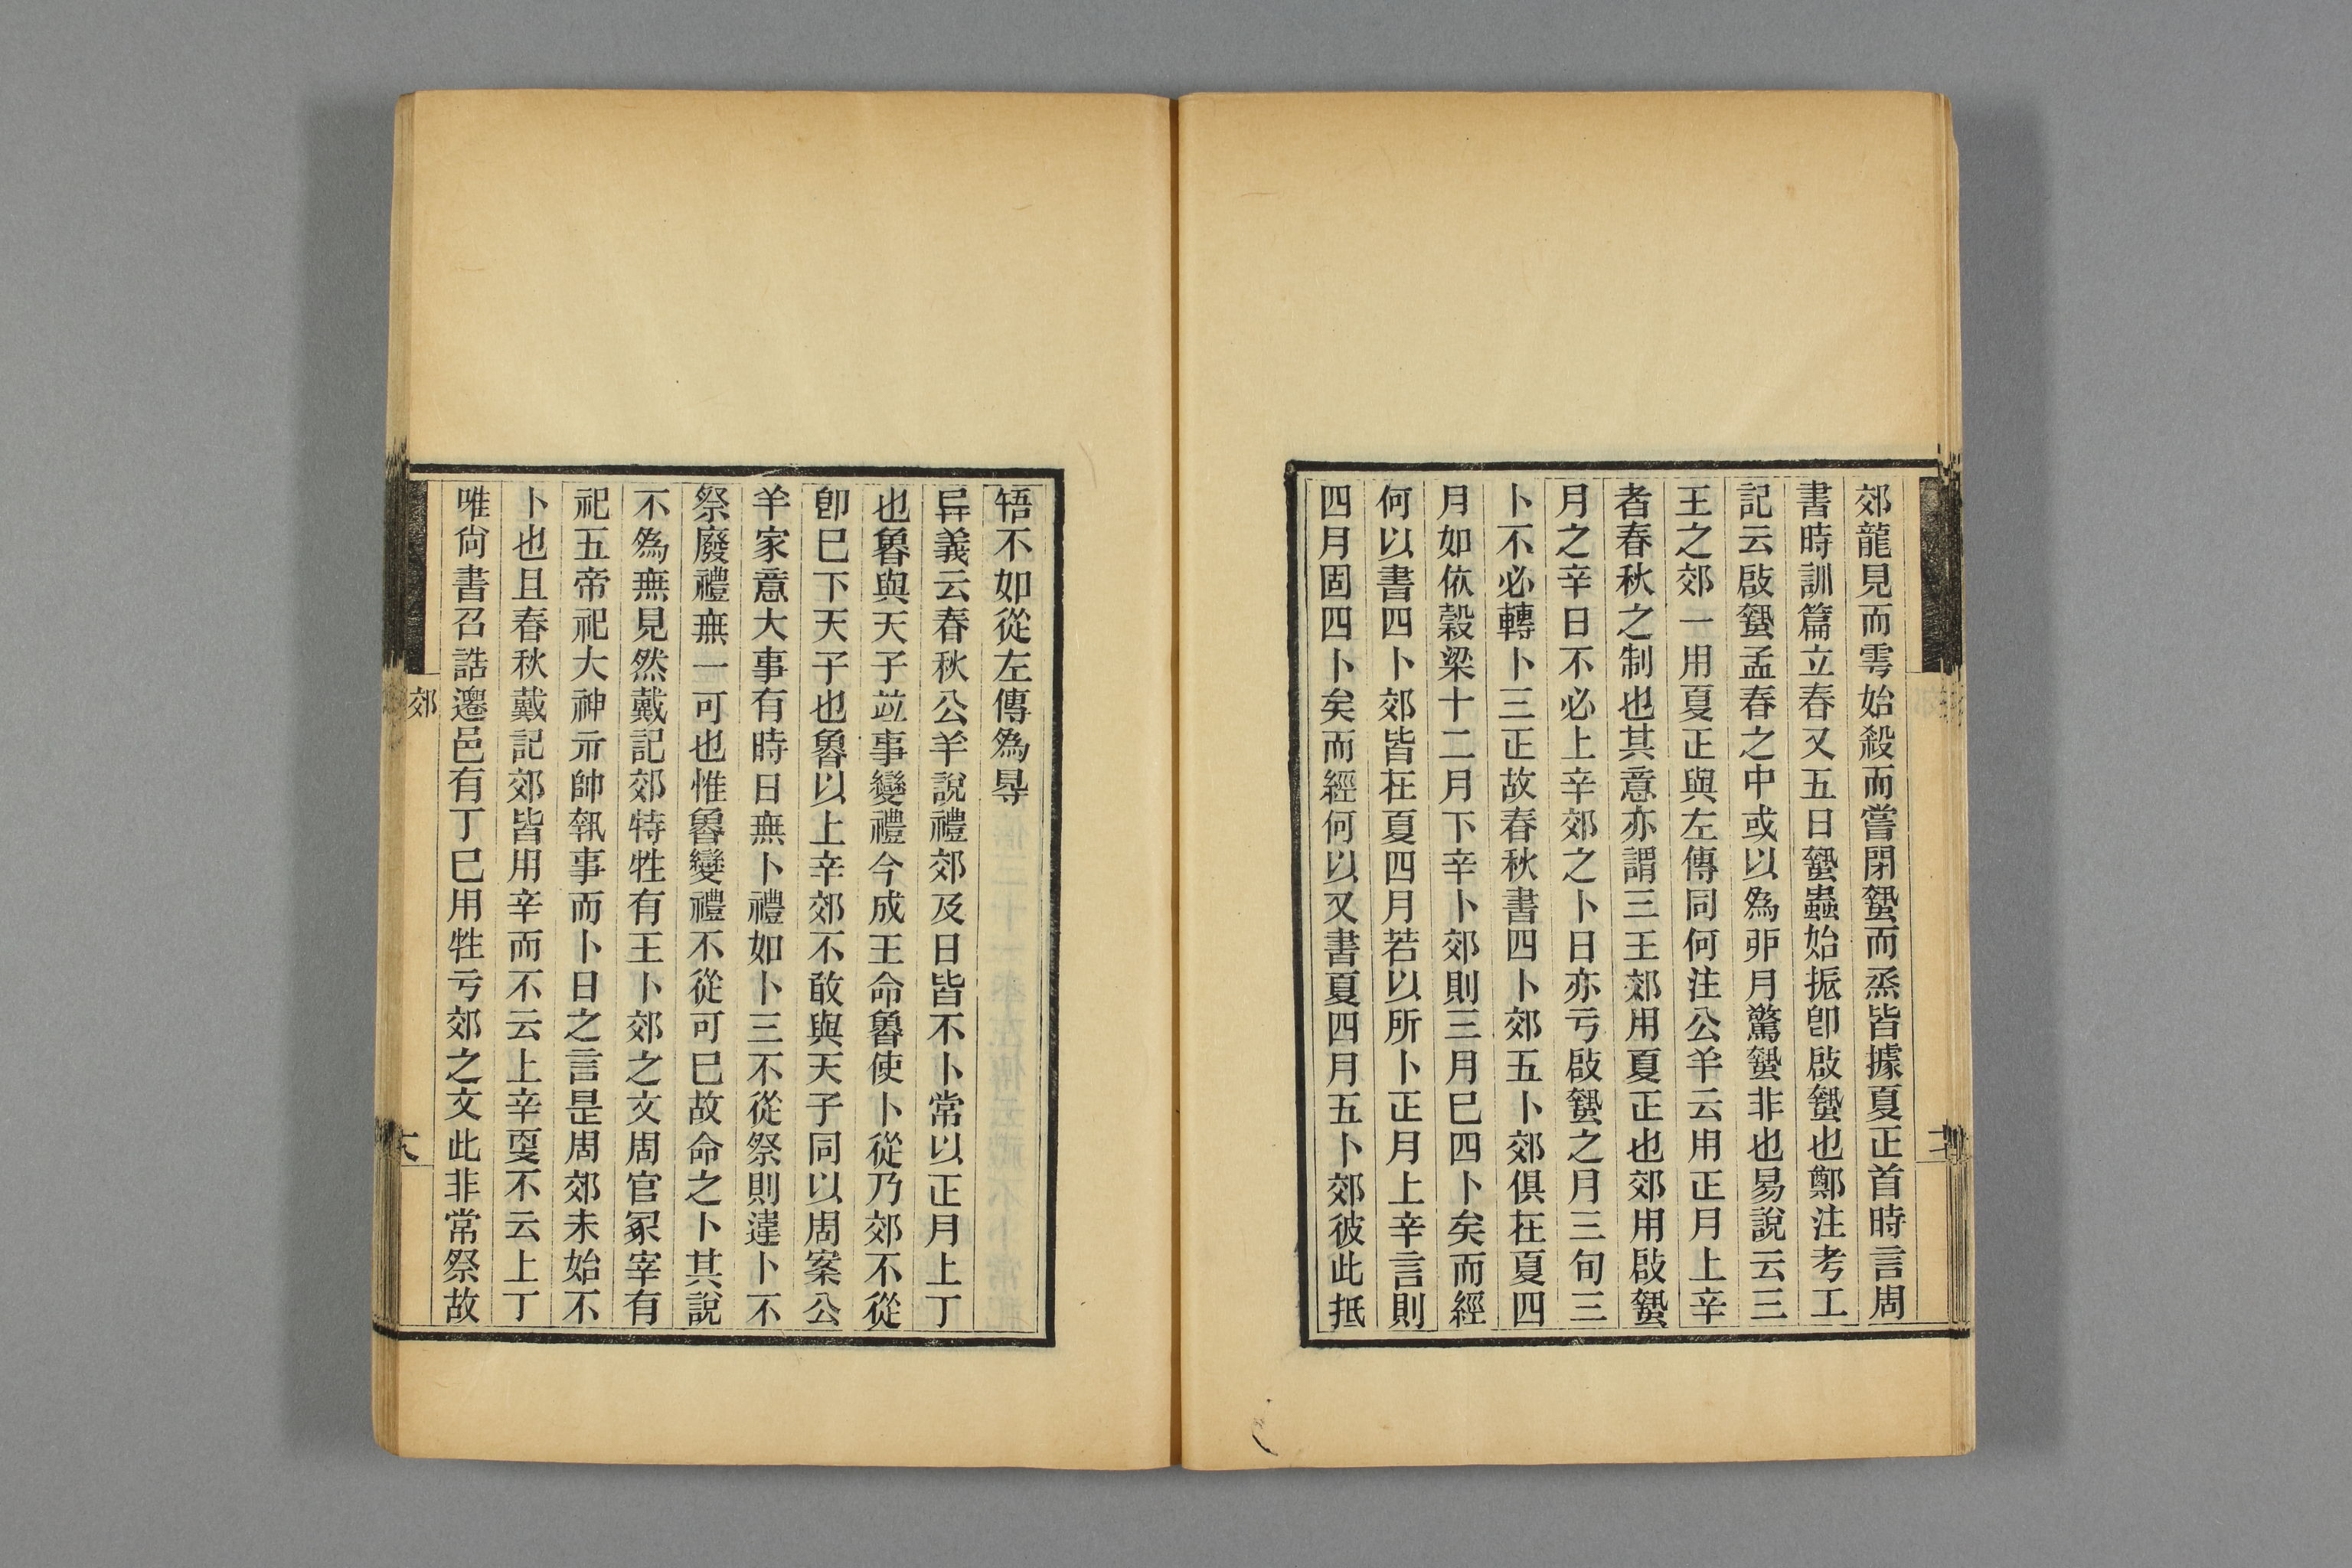 郊龍見而雩始殺而嘗閉蟄而烝皆據夏正首時言周
書時訓篇立春又五日蟄蟲始振卽啟蟄也鄭注考工
記云啟蟄孟春之中或以爲丣月驚蟄非也易說云三
王之郊一用夏正與左傳同何注公羊云用正月上辛
者春秋之制也其意亦謂三王郊用夏正也郊用啟蟄
月之辛日不必上辛郊之卜日亦亏啟蟄之月三旬三
卜不必轉卜三正故春秋書四卜郊五卜郊俱在夏四
月如依穀梁十二月下辛卜郊則三月巳四卜矣而經
何以書四卜郊皆在夏四月若以所卜正月上辛言則
四月固四卜矣而經何以又書夏四月五卜郊彼此抵
牾不如從左傳爲㝵
异義云春秋公羊說禮郊及日皆不卜常以正月上丁
也魯與天子竝事變禮今成王命魯使卜從乃郊不從
卽巳下天子也魯以上辛郊不敢與天子同以周案公
羊家意大事有時日無卜禮如卜三不從祭則違卜不
祭廢禮無一可也惟魯變禮不從可巳故命之卜其說
不爲無見然戴記郊特牲有王卜郊之文周官冢宰有
祀五帝祀大神示帥執事而卜日之言是周郊未始不
卜也且春秋戴記郊皆用辛而不云上辛亶不云上丁
唯尙書召誥遷邑有丁巳用牲亏郊之文此非常祭故
郊